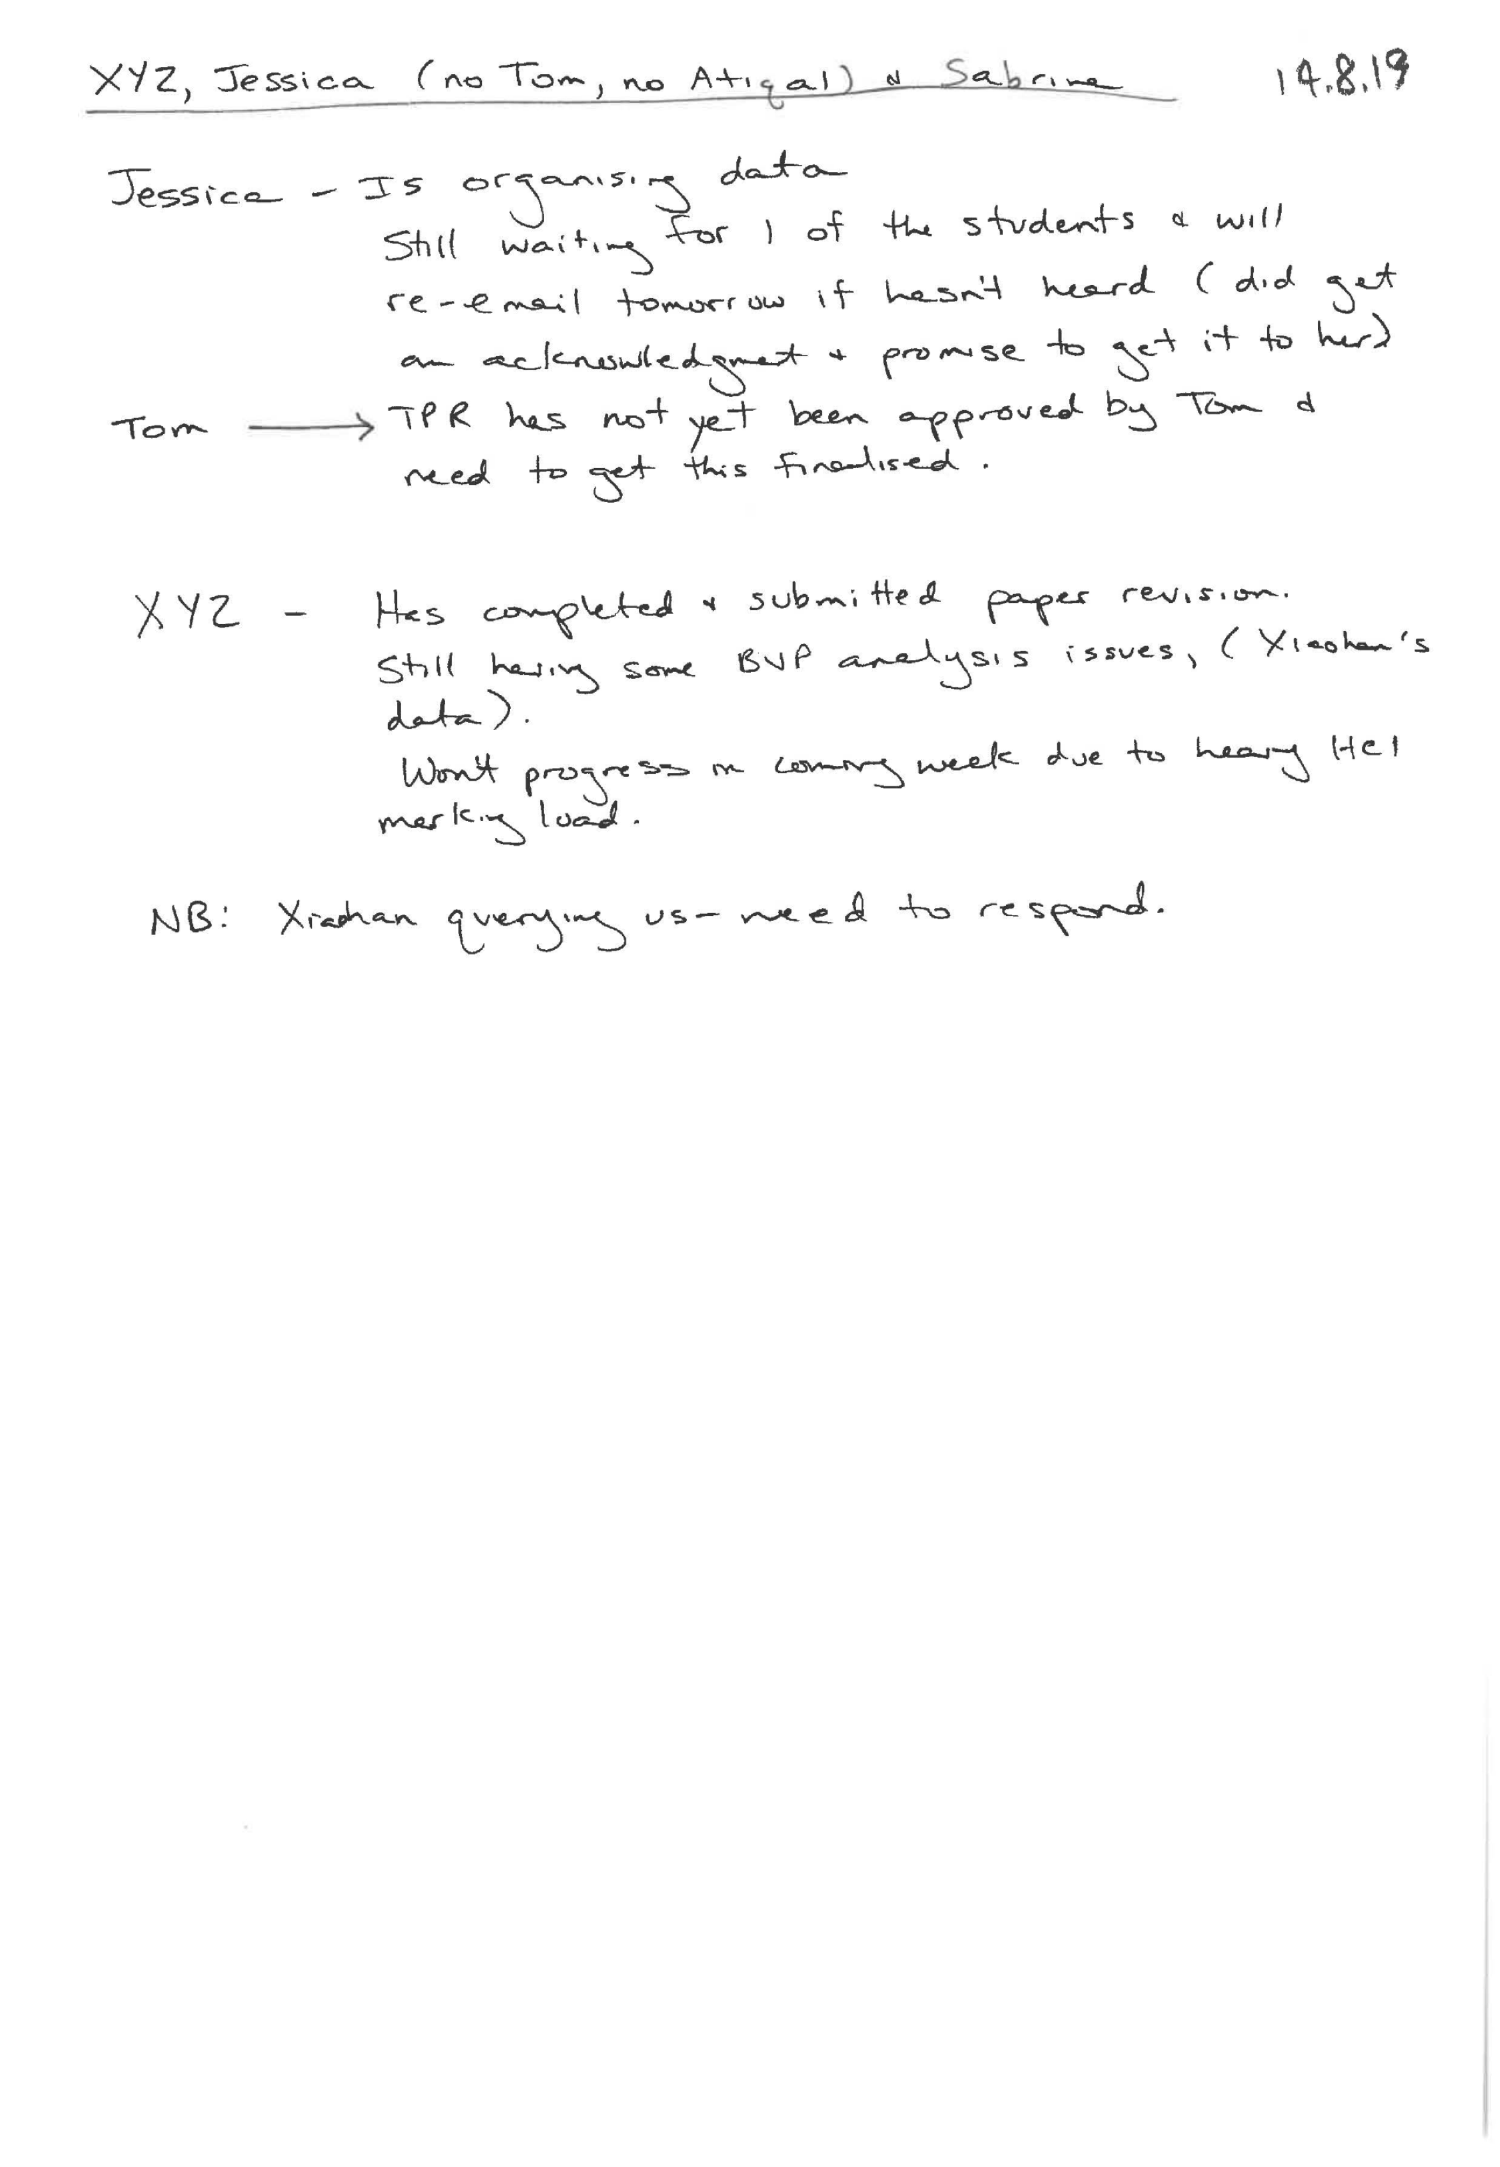 XYZ, Jessica (no Tom, no Atiqal) & Sabrina 14.8.19
Jessica - Is organising data
Still waiting for 1 of the students & will
re-email tomorrow if hasn't heard (did get
an acknowledgment & promise to get it to her)
Tom → TPR has not yet been approved by Tom &
need to get this finalised.
XYZ - Has completed & submitted paper revision.
Still having some BVP analysis issues, (Xiaohan's
data).
Won't progress in coming week due to heavy HCI
marking load.
NB: Xiaohan querying us - need to respond.